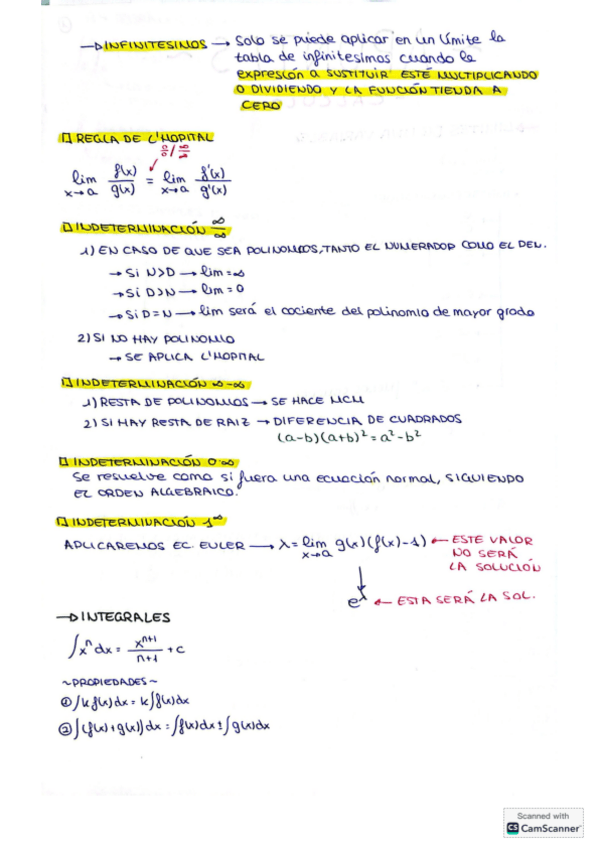 → INFINITESIMOS → Solo se puede aplicar en un límite la
tabla de infinitesimos cuando la
expresión a SUSTITUIR ESTÉ MULTIPLICANDO
O DIVIDIENDO Y LA FUNCIÓN TIENDA A
CERO
REGLA DE L'HOPITAL
0/0 / ∞/∞
lim x→a f(x)/g(x) = lim x→a f'(x)/g'(x)
INDETERMINACIÓN ∞/∞
1) EN CASO DE QUE SEA POLINOMIOS, TANTO EL NUMERADOR COMO EL DEN.
→ Si N>D → lim = ∞
→ Si D>N → lim = 0
→ Si D=N → lim será el cociente del polinomio de mayor grado
2) SI NO HAY POLINOMIO
→ SE APLICA L'HOPITAL
INDETERMINACIÓN ∞-∞
1) RESTA DE POLINOMIOS → SE HACE MCM
2) SI HAY RESTA DE RAIZ → DIFERENCIA DE CUADRADOS
(a-b)(a+b)² = a²-b²
INDETERMINACIÓN 0·∞
Se resuelve como si fuera una ecuación normal, SIGUIENDO
EL ORDEN ALGEBRAICO.
INDETERMINACIÓN 1^∞
APLICAREMOS EC. EULER → λ = lim x→a g(x)(f(x)-1) ← ESTE VALOR
NO SERÁ
LA SOLUCIÓN
e^λ ← ESTA SERÁ LA SOL.
→ INTEGRALES
∫x^n dx = x^(n+1)/(n+1) + c
~PROPIEDADES~
① ∫k f(x)dx = k∫f(x)dx
② ∫(f(x)+g(x))dx = ∫f(x)dx ± ∫g(x)dx
Scanned with
CS CamScanner